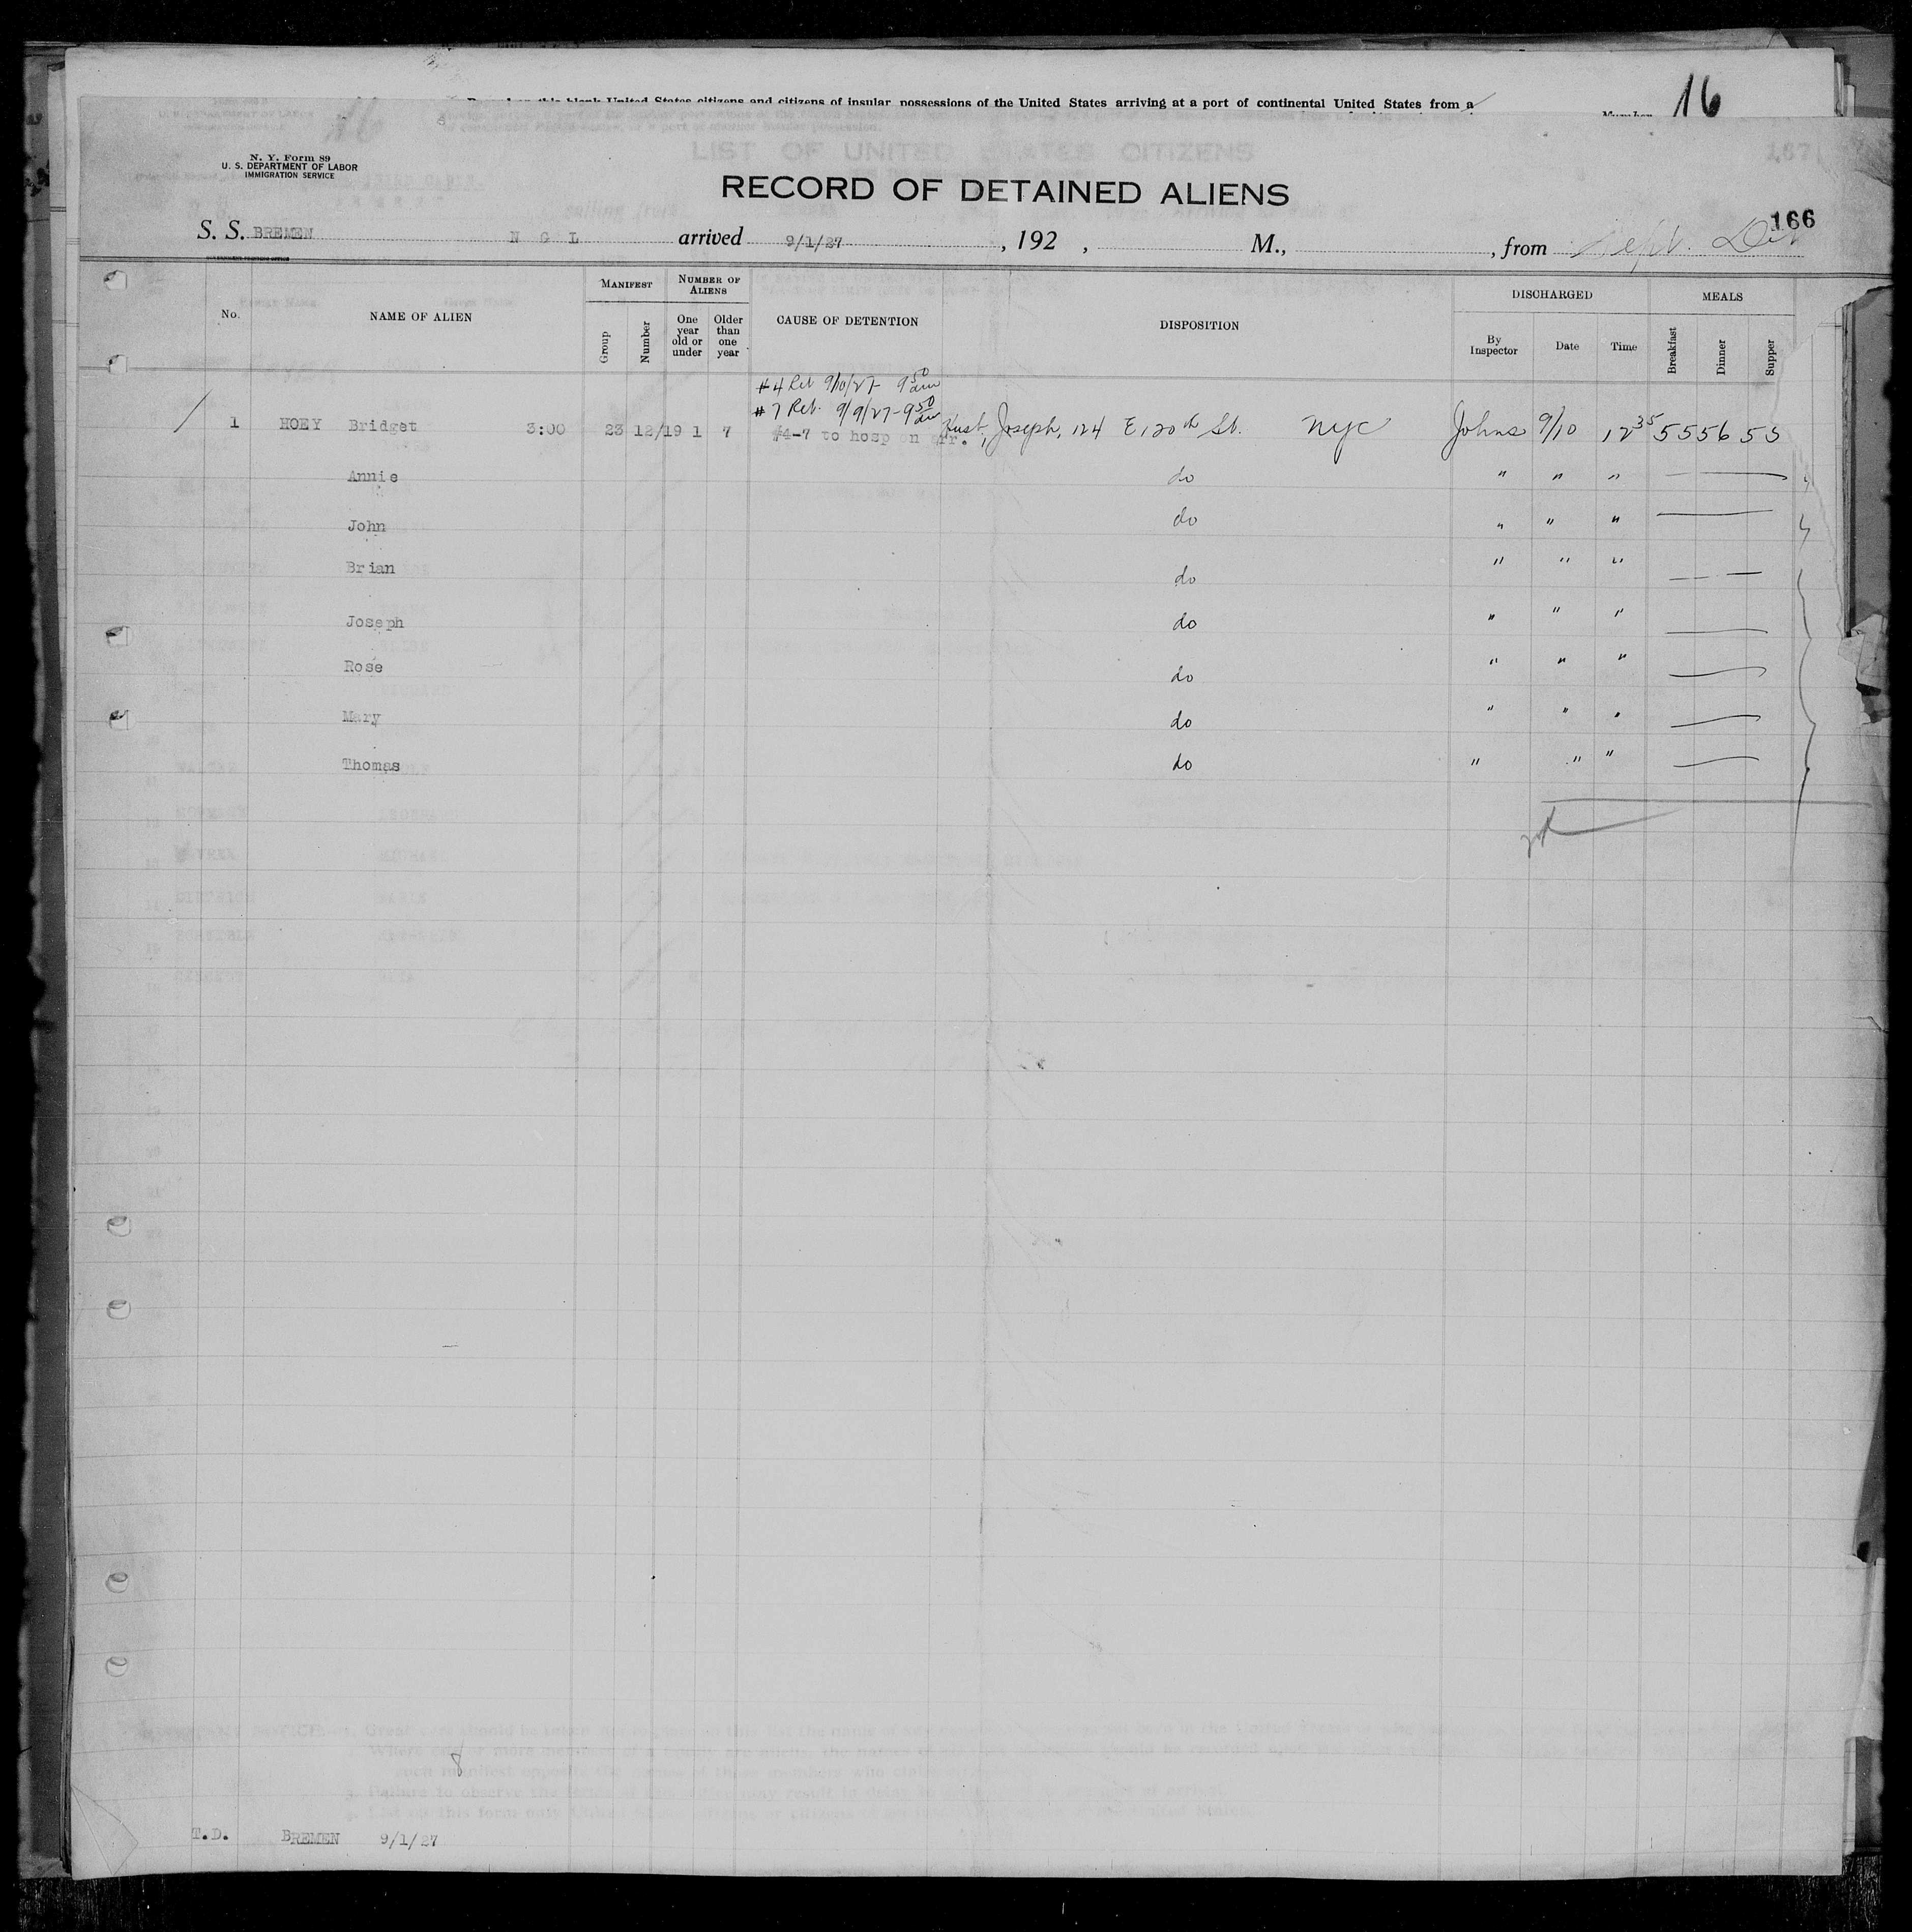 16
citizens and citizens of insular possessions of the United States arriving at a port of continental United States from a
LIST OF UNITED STATES CITIZENS
167
N. Y. Form 89
U. S. DEPARTMENT OF LABOR
IMMIGRATION SERVICE
RECORD OF DETAINED ALIENS
166
S. S. BREMEN N G L arrived 9/1/27, 192 , M., , from Sept.
No. NAME OF ALIEN MANIFEST Group Number NUMBER OF ALIENS One year old or under Older than one year CAUSE OF DETENTION DISPOSITION DISCHARGED By Inspector Date Time MEALS Breakfast Dinner Supper
#4 Ret 9/10/27 9 50 am
#7 Ret. 9/9/27-9 50 am
1 HOEY Bridget 3:00 23 12/19 1 7 #4-7 to hosp on arr. Hust, Joseph, 124 E 120th St. NYC Johns 9/10 12 35 55 56 55
Annie do " " "
John do " " "
Brian do " " "
Joseph do " " "
Rose do " " "
Mary do " " "
Thomas do " " "
8
T.D. BREMEN 9/1/27